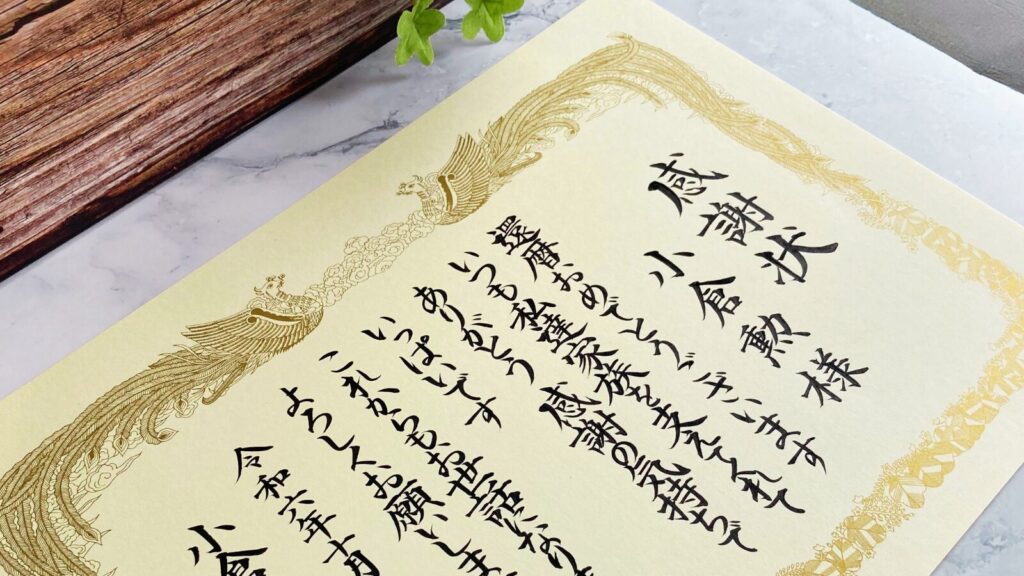 感謝状
小倉勲様
還暦おめでとうございます
いつも私達家族を支えてくれて
ありがとう 感謝の気持ちで
いっぱいです
これからもお世話になり
よろしくお願いしま
令和六年十月
小倉